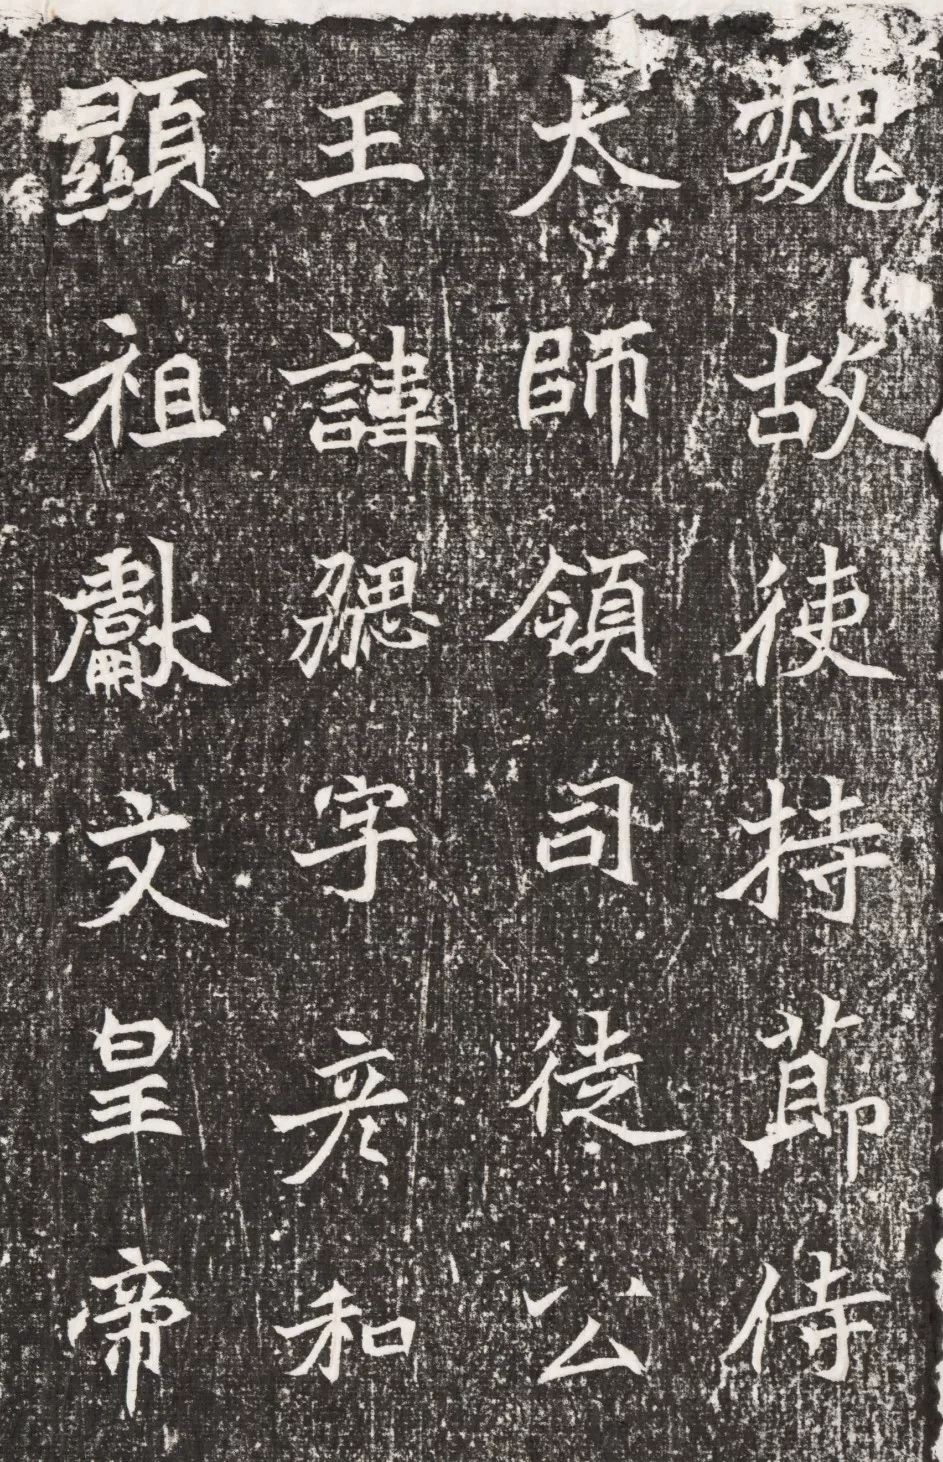 魏故使持節侍
太師領司徒公
王諱勰字彥和
顯祖獻文皇帝